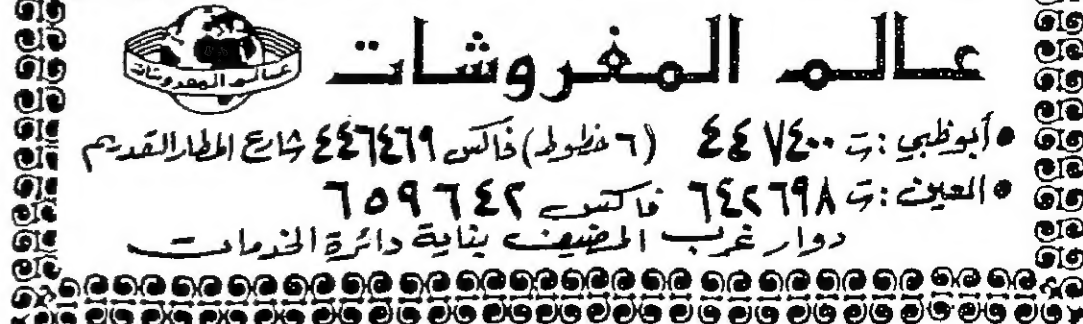 عالم المفروشات
عالم المفروشات
• أبوظبي : ت ٤٤٧٤٠٠ (٦ خطوط) فاكس ٤٤٦٤٦٩ شارع المطار القديم
• العين : ت ٦٤٢٦٩٨ فاكس ٦٥٩٦٤٢
دوار غرب المضيف بناية دائرة الخدمات